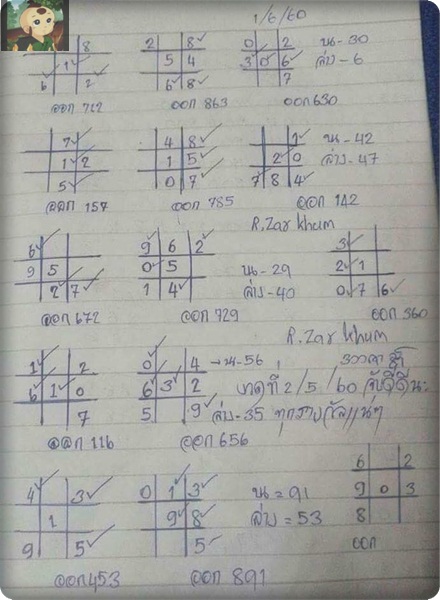 1/6/60
8
1
6 2
ออก 712
2 8
5 4
6 8
ออก 863
0 2
3 0 6
7
ออก 630
บน-30
ล่าง-6
7
1 2
5
ออก 157
4 8
1 5
0 7
ออก 785
1
2 0
7 8 4
ออก 142
บน-42
ล่าง-47
R.Zar khum
6
9 5
2 7
ออก 672
9 6 2
0 5
1 4
ออก 729
บน-29
ล่าง-40
3
2 1
0 7 6
ออก 360
R.Zar khum
1 2
6 1 0
7
ออก 116
0 4
6 3 2
5 9
ออก 656
→บน-56
ล่าง-35
งวดที่ 2/5/60
4 3
1
9 5
ออก 453
0 1 3
9 8
5
ออก 891
บน=91
ล่าง=53
6 2
9 0 3
8
ออก